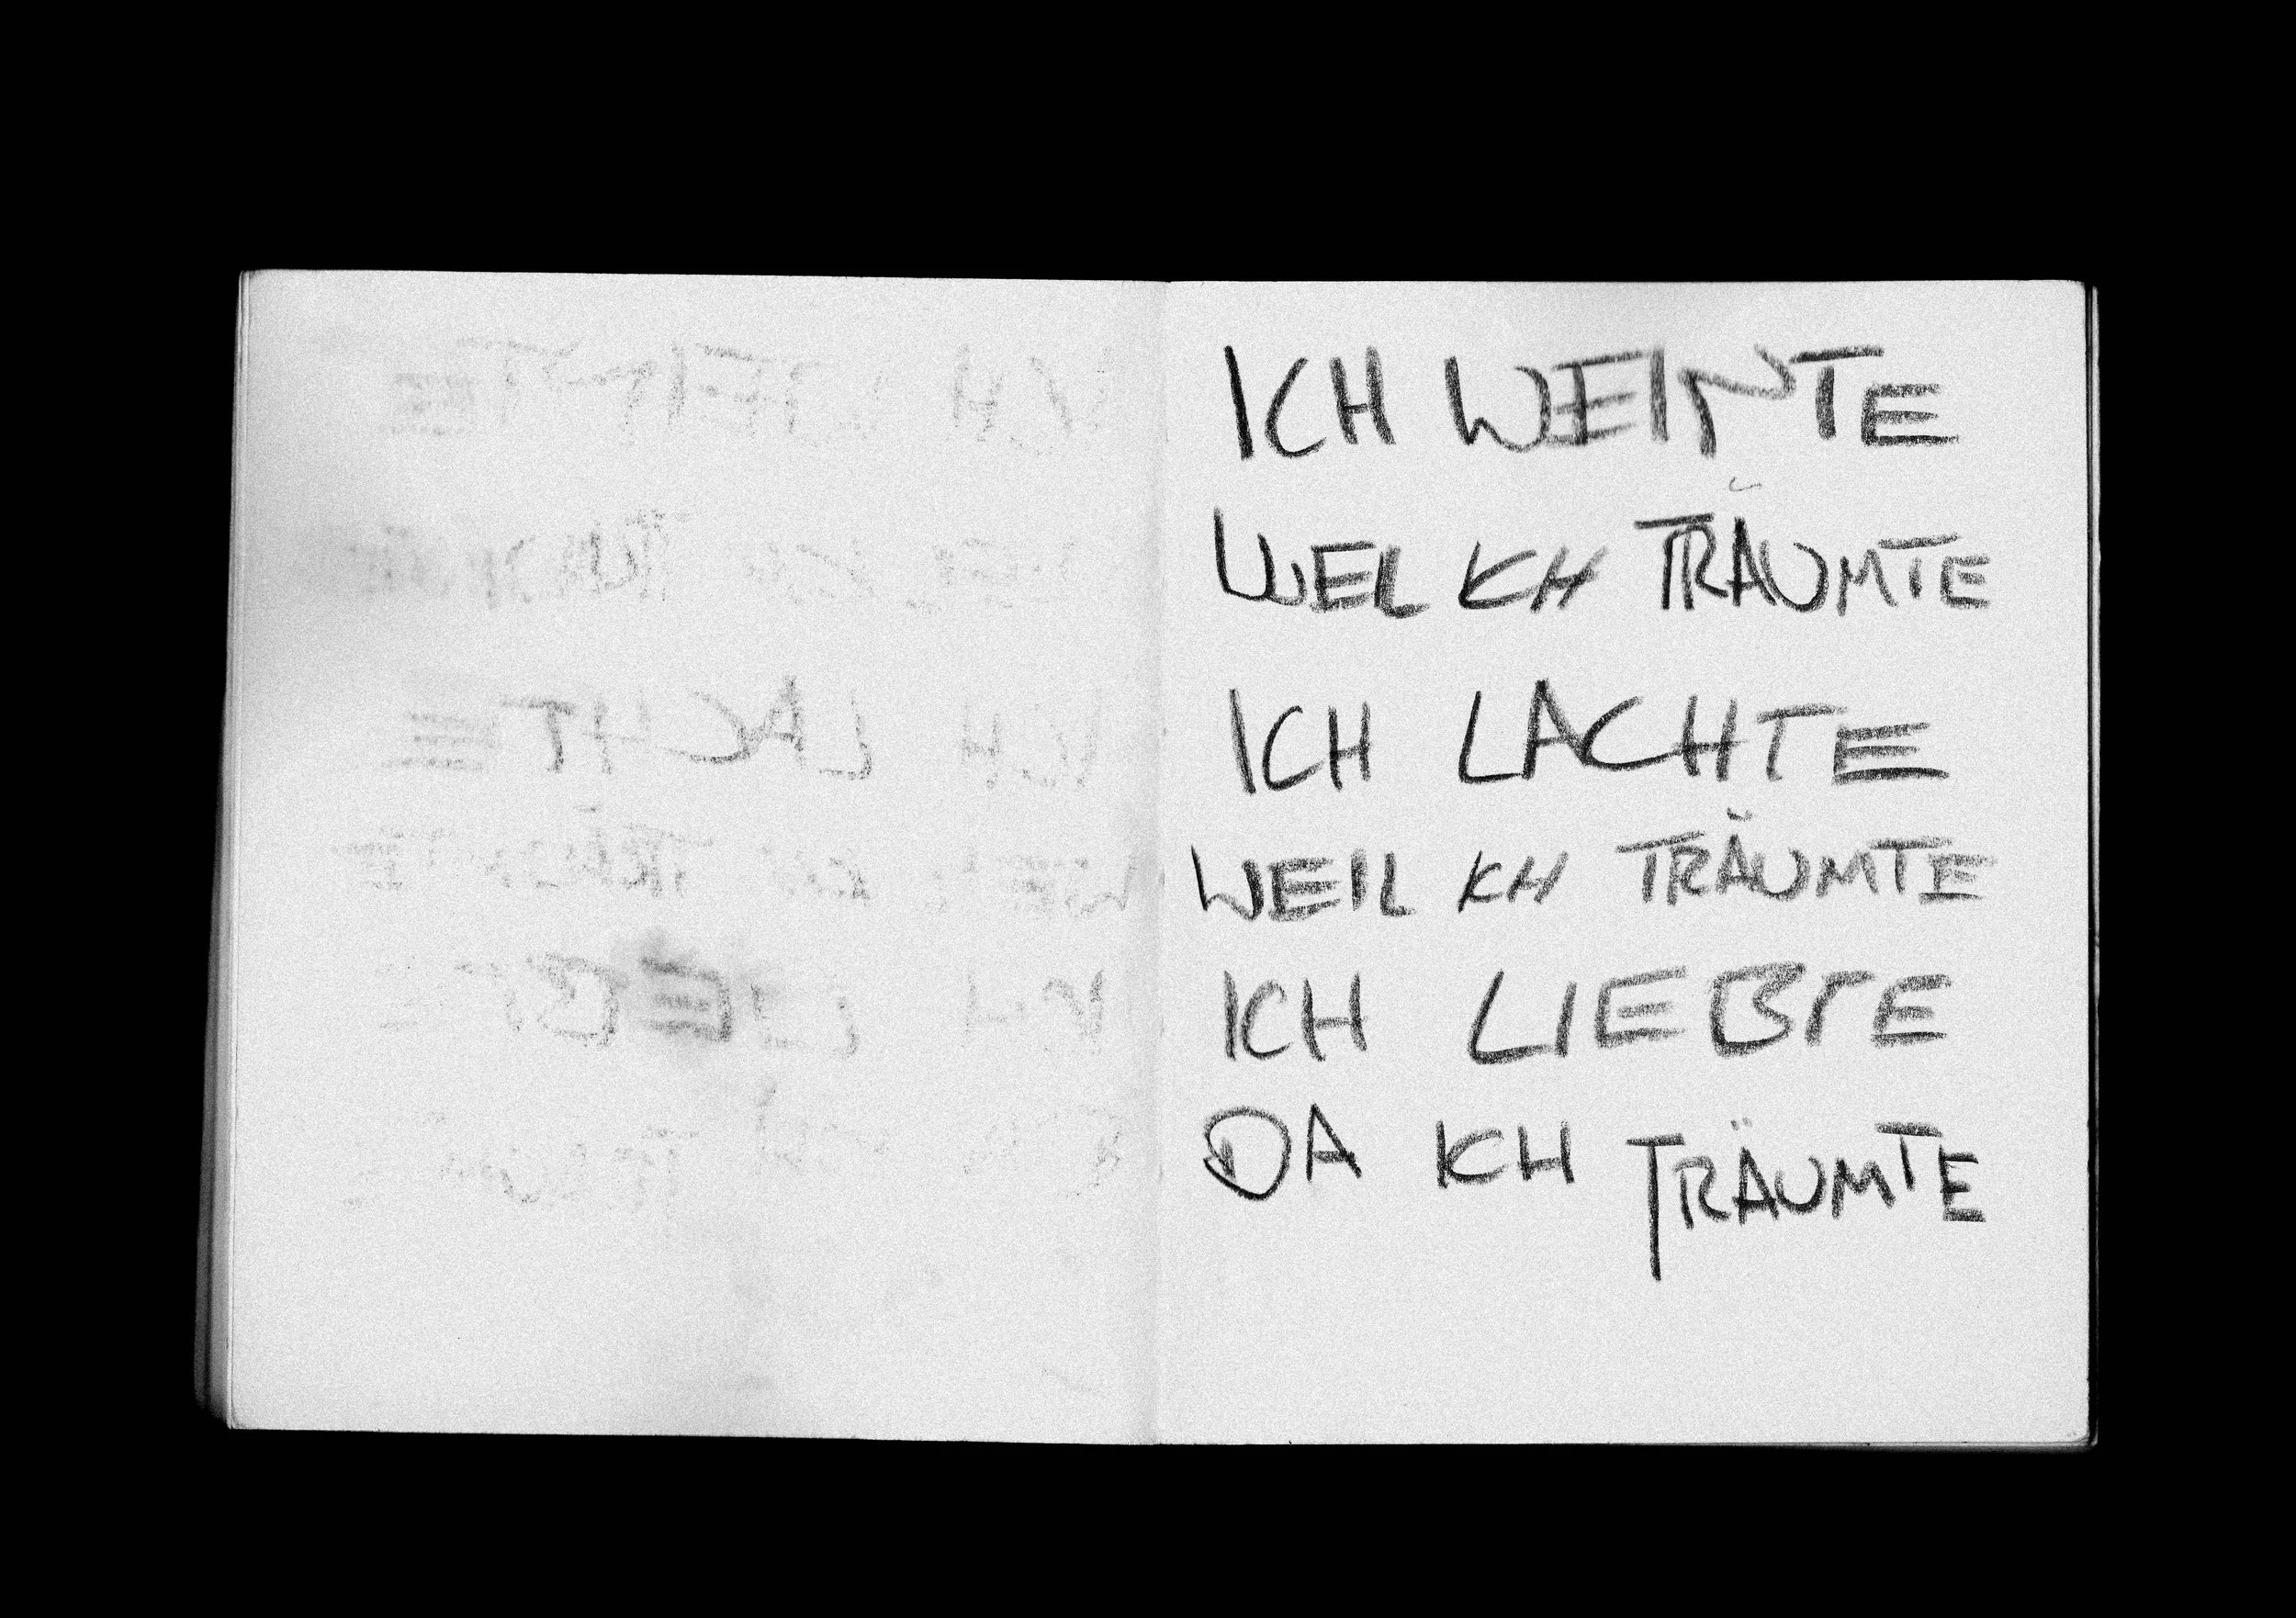 ICH WEINTE
WEIL ICH TRÄUMTE
ICH LACHTE
WEIL ICH TRÄUMTE
ICH LIEBTE
DA ICH TRÄUMTE